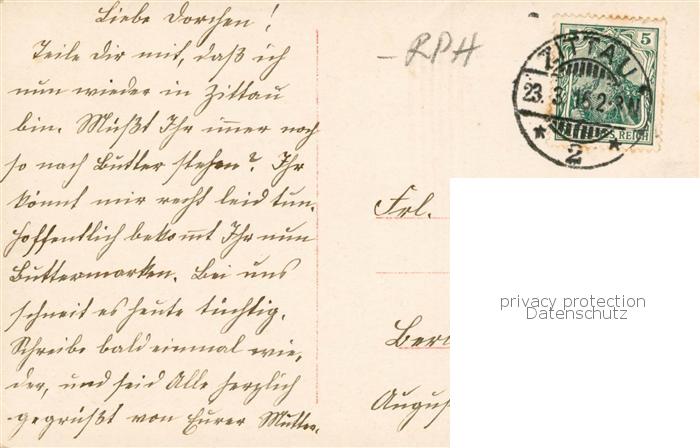 Liebe Dorchen!
Teile Dir mit, daß ich
nun wieder in Zittau
bin. Müßt Ihr immer noch
so nach Butter stehen? Ihr
könnt mir recht leid tun.
Hoffentlich bekommt Ihr nun
Buttermarken. Bei uns
schneit es heute tüchtig.
Schreibe bald einmal wie,
der, und seid Alle herzlich
gegrüßt von Eurer Mutter.
RPH
5
ZITTAU
23. 3. 16. 2-3 N
* 2 *
REICH
Frl.
privacy protection
Datenschutz